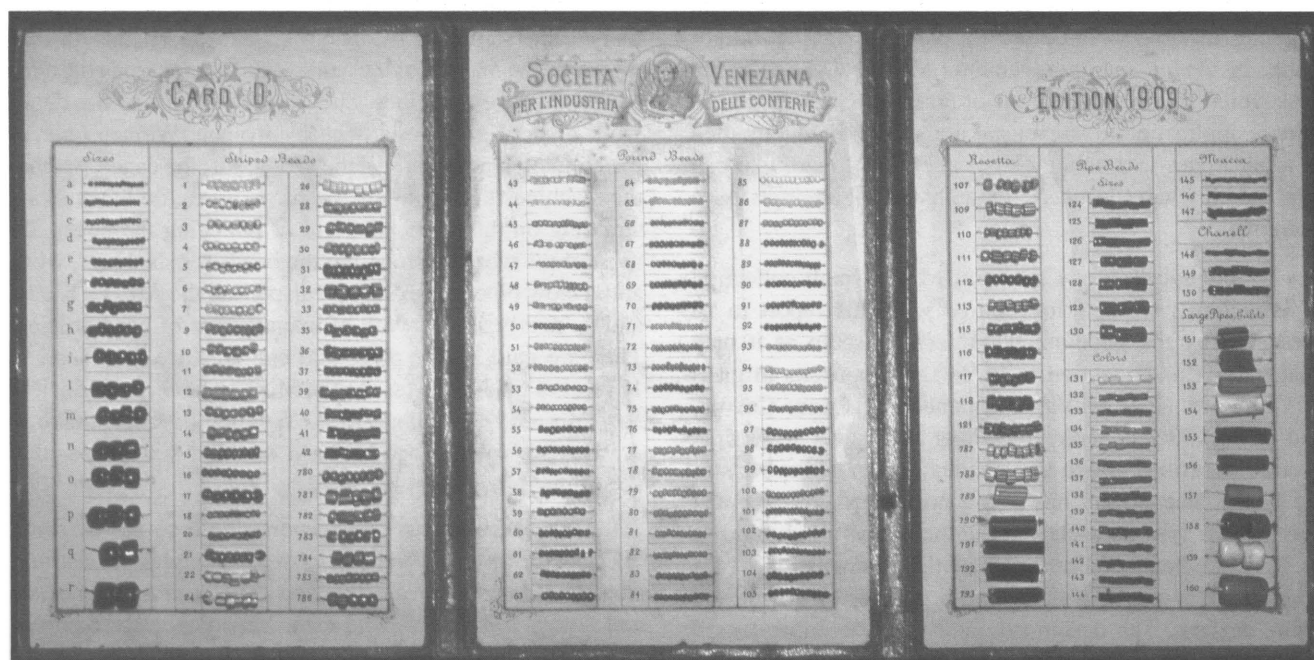 CARD D.
Sizes
a
b
c
d
e
f
g
h
i
l
m
n
o
p
q
r
Striped Beads
1
2
3
4
5
6
7
9
10
11
12
13
14
15
16
17
18
20
21
22
24
26
28
29
30
31
32
33
35
36
37
39
40
41
42
780
781
782
783
784
785
786
SOCIETÀ VENEZIANA
PER L'INDUSTRIA DELLE CONTERIE
Pound Beads
43
44
45
46
47
48
49
50
51
52
53
54
55
56
57
58
59
60
61
62
63
64
65
66
67
68
69
70
71
72
73
74
75
76
77
78
79
80
81
82
83
84
85
86
87
88
89
90
91
92
93
94
95
96
97
98
99
100
101
102
103
104
105
EDITION 1909
Rosetta
107
109
110
111
112
113
115
116
117
118
121
787
788
789
790
791
792
793
Pipe Beads
Sizes
124
125
126
127
128
129
130
Colors
131
132
133
134
135
136
137
138
139
140
141
142
143
144
Macca
145
146
147
Chanell
148
149
150
Large Pipes,
151
152
153
154
155
156
157
158
159
160